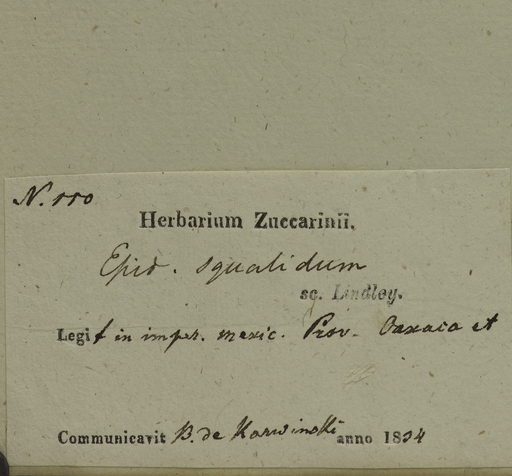 N. 110
Herbarium Zuccarinii.
Epid. squalidum
sc. Lindley.
Legit in imper. mexic. Prov. Oaxaca et
Communicavit B. de Karwinski anno 1834